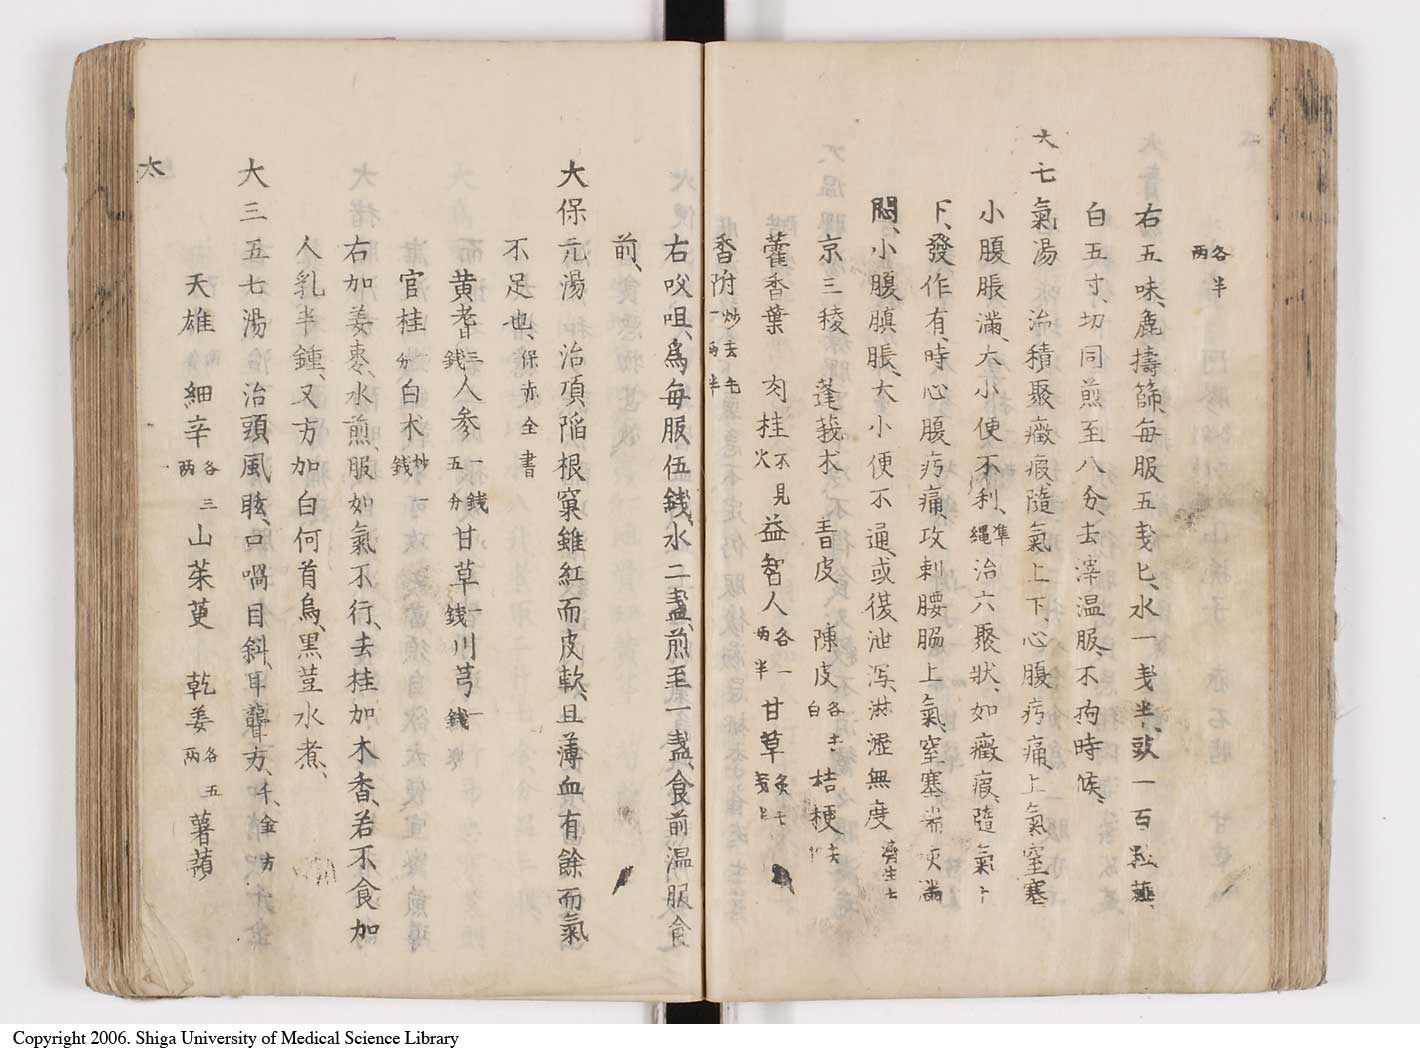 各半
兩
右五味、麁擣篩、每服五戔匕、水一戔半、豉一百粒、薤
白五寸、切同煎至八分、去滓温服、不拘時候、
大七氣湯 治積聚癥瘕隨氣上下、心腹㽲痛、上氣窒塞、
小腹脹滿、大小便不利、準繩 治六聚狀、如癥瘕、隨氣上
下、發作有時、心腹㽲痛、攻刺腰脇、上氣窒塞、喘咳滿
悶、小腹䐜脹、大小便不通、或復泄瀉、淋瀝無度 濟生
京三稜 蓬莪朮 青皮 陳皮 各去白 桔梗 去
藿香葉 肉桂 不見火 益智人 各一兩半 甘草 炙
香附 炒去毛一兩半
右㕮咀、爲每服伍錢、水二盞、煎至一盞、食前温服食
前、
大保元湯 治頂陷根窠雖紅而皮軟、且薄血有餘而氣
不足也、保赤全書
黄耆 三錢 人參 一錢五分 甘草 一錢 川芎 一錢
官桂 分 白朮 炒一錢
右加姜棗、水煎、服如氣不行、去桂加木香、若不食加
人乳半鍾、又方加白何首烏、黑荳水煮、
大三五七湯 治頭風眩、口喎目斜、耳聾方、千金方
天雄 細辛 各三兩 山茱萸 乾姜 各五兩 薯蕷
大